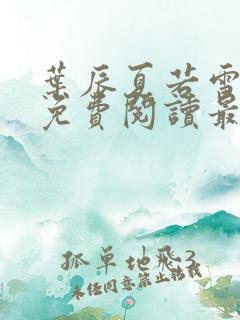 葉辰夏若雪
免費閱讀最
孤單地飛3
未经同意禁止转载